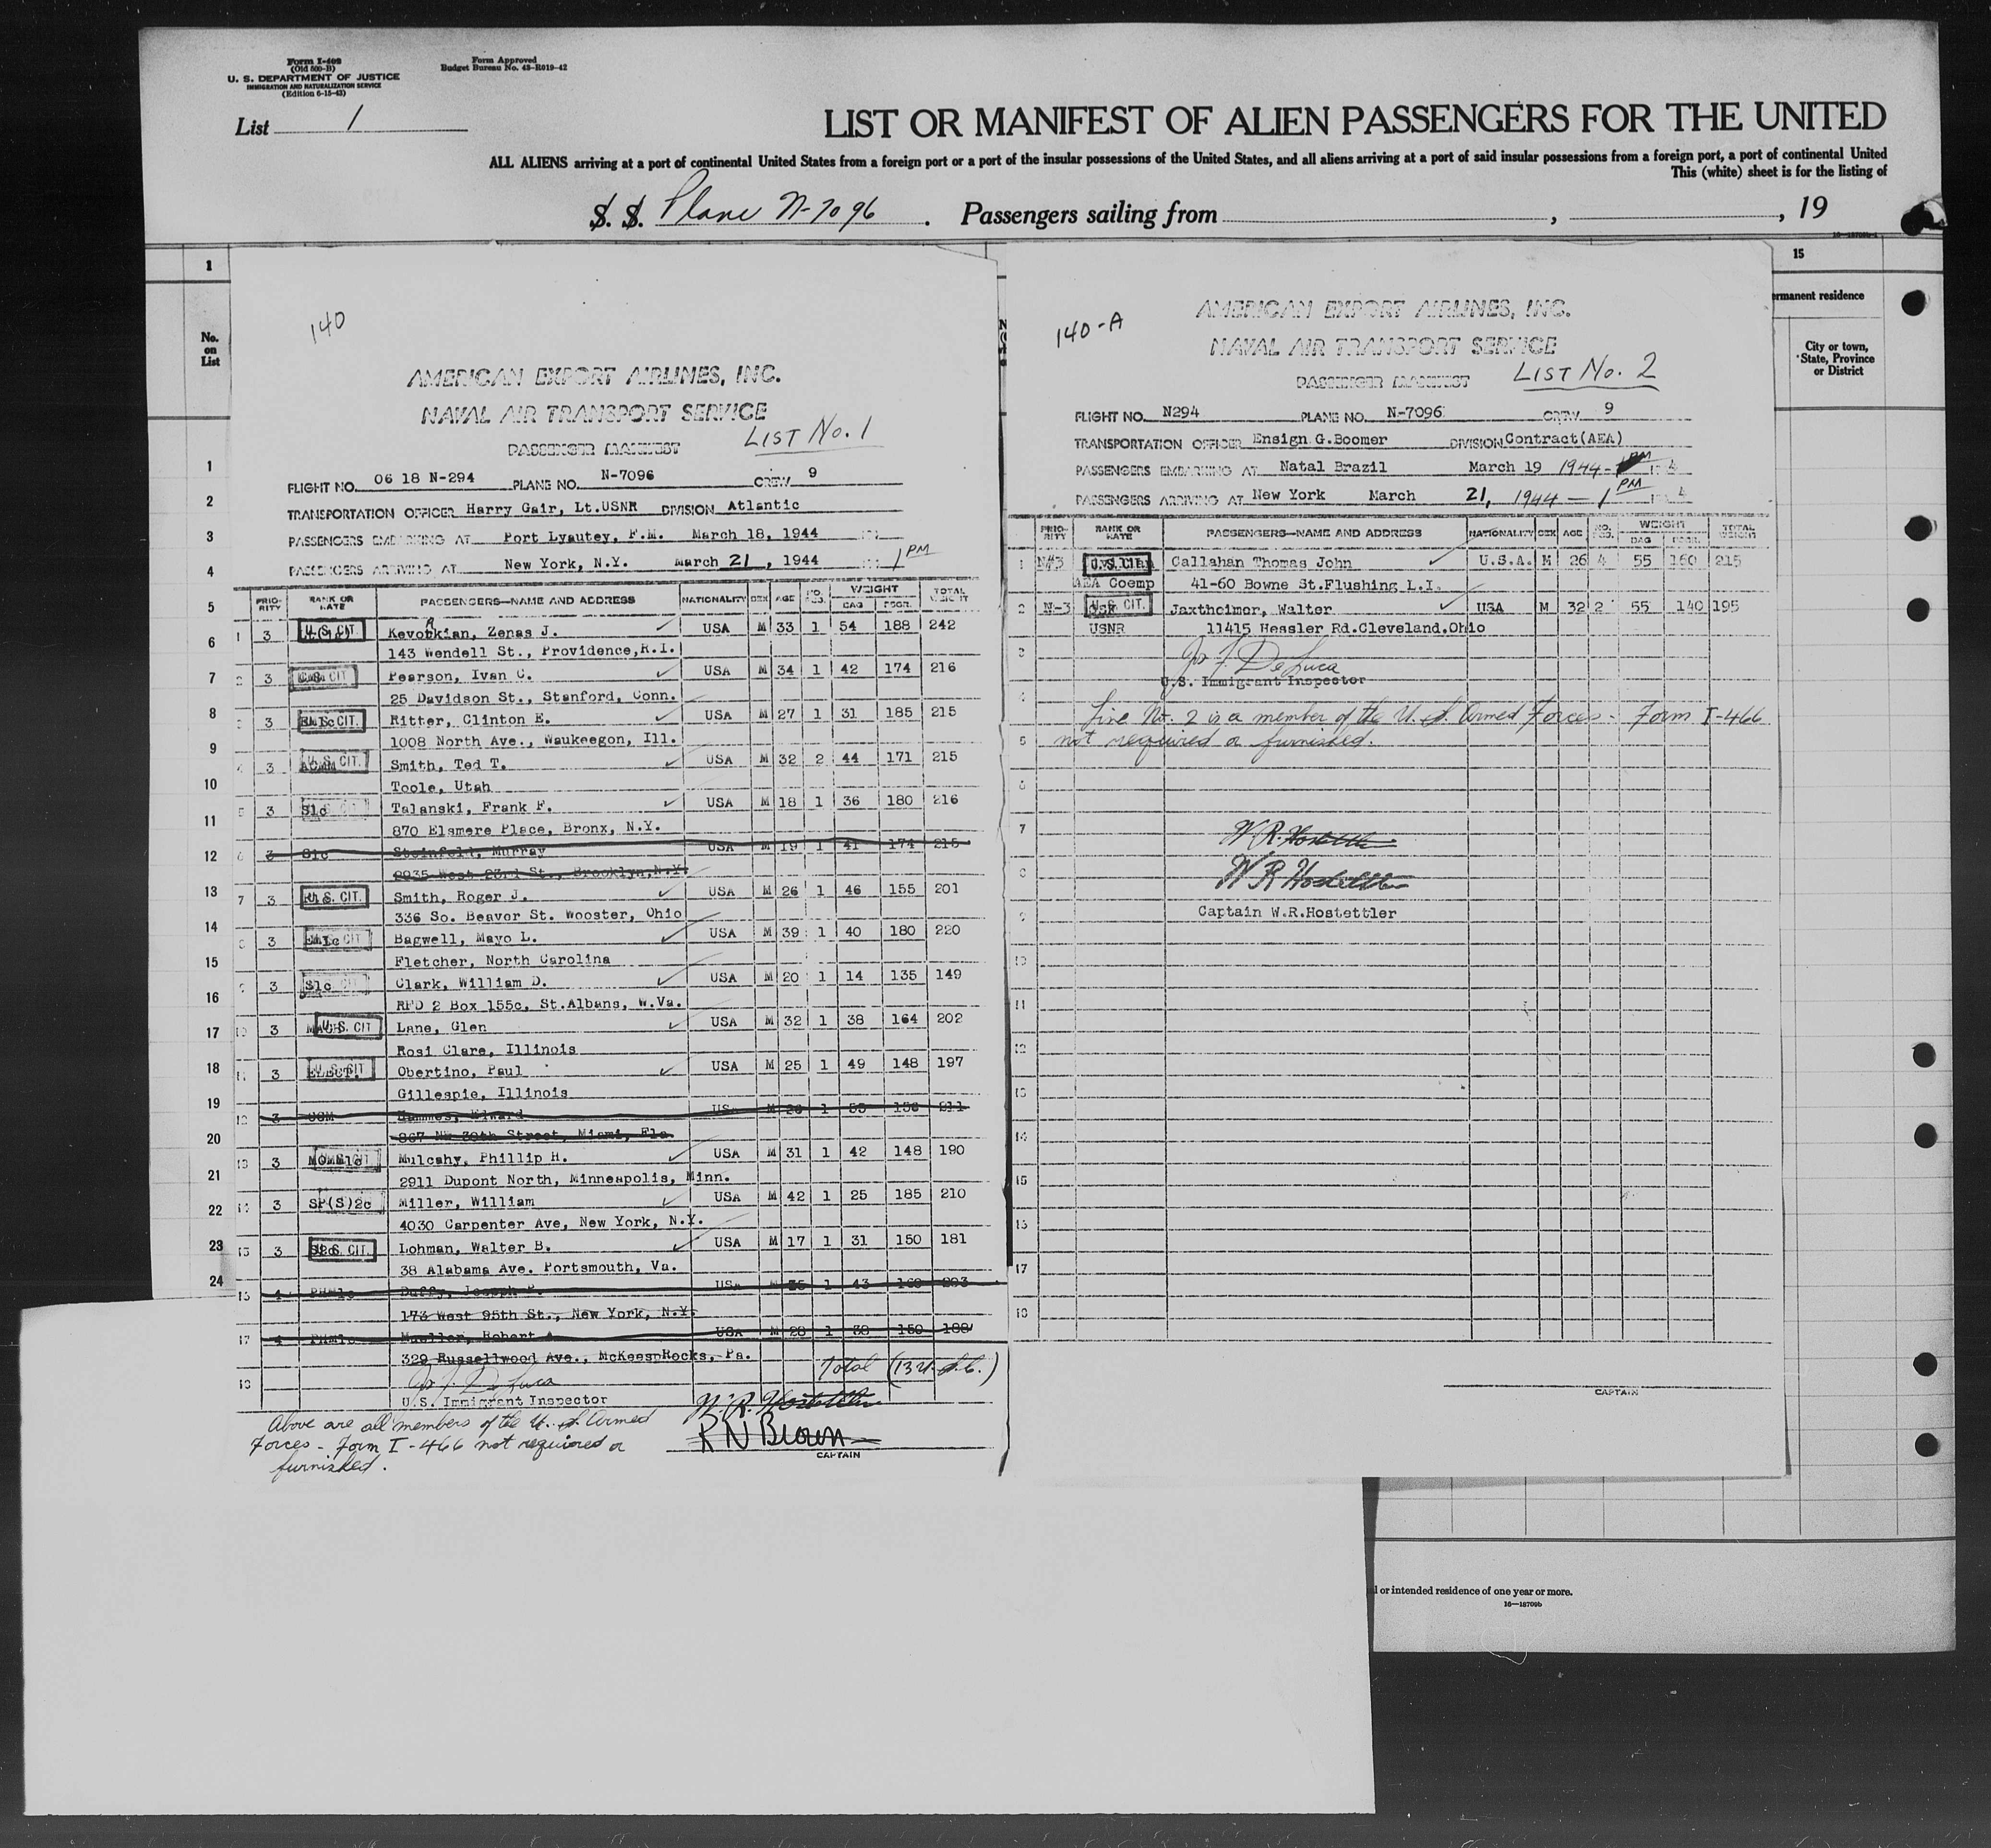 Form I-409
(Old 500-B)
U. S. DEPARTMENT OF JUSTICE
IMMIGRATION AND NATURALIZATION SERVICE
(Edition 6-15-43)
Form Approved
Budget Bureau No. 43-R019-42
List 1
LIST OR MANIFEST OF ALIEN PASSENGERS FOR THE UNITED
ALL ALIENS arriving at a port of continental United States from a foreign port or a port of the insular possessions of the United States, and all aliens arriving at a port of said insular possessions from a foreign port, a port of continental United
This (white) sheet is for the listing of
S. S. Plane N-7096. Passengers sailing from , , 19
1
No.
on
List
1
2
3
4
5
6
7
8
9
10
11
12
13
14
15
16
17
18
19
20
21
22
23
24
140
AMERICAN EXPORT AIRLINES, INC.
NAVAL AIR TRANSPORT SERVICE
LIST No. 1
PASSENGER MANIFEST
FLIGHT NO. 06 18 N-294 PLANE NO. N-7096 CREW 9
TRANSPORTATION OFFICER Harry Gair, Lt.USNR DIVISION Atlantic
PASSENGERS EMBARKING AT Port Lyautey, F.M. March 18, 1944
PASSENGERS ARRIVING AT New York, N.Y. March 21, 1944 1 PM
PRIORITY RANK OR RATE PASSENGERS—NAME AND ADDRESS NATIONALITY SEX AGE NO. PCS. WEIGHT BAG PSGR. TOTAL WEIGHT
1 3 U.S. CIT. Kevorkian, Zenas J. USA M 33 1 54 188 242
143 Wendell St., Providence, R.I.
2 3 U.S. CIT Pearson, Ivan C. USA M 34 1 42 174 216
25 Davidson St., Stanford, Conn.
3 3 U.S. CIT. Ritter, Clinton E. USA M 27 1 31 185 215
1008 North Ave., Waukeegon, Ill.
4 3 U.S. CIT. Smith, Ted T. USA M 32 2 44 171 215
Toole, Utah
5 3 S1c Talanski, Frank F. USA M 18 1 36 180 216
870 Elsmere Place, Bronx, N.Y.
6 3 S1c Steinfeld, Murray USA M 19 1 41 174 215
2935 West 23rd St., Brooklyn, N.Y.
7 3 U.S. CIT. Smith, Roger J. USA M 26 1 46 155 201
336 So. Beavor St. Wooster, Ohio
8 3 EM1c Bagwell, Mayo L. USA M 39 1 40 180 220
Fletcher, North Carolina
9 3 S1c Clark, William D. USA M 20 1 14 135 149
RFD 2 Box 155c, St.Albans, W.Va.
10 3 U.S. CIT Lane, Glen USA M 32 1 38 164 202
Rosi Clare, Illinois
11 3 U.S. CIT Obertino, Paul USA M 25 1 49 148 197
Gillespie, Illinois
12 3 Hammes, Edward USA M 1 211
867 NW 30th Street, Miami, Fla.
13 3 MOMM1c Mulcahy, Phillip H. USA M 31 1 42 148 190
2911 Dupont North, Minneapolis, Minn.
14 3 SP(S)2c Miller, William USA M 42 1 25 185 210
4030 Carpenter Ave, New York, N.Y.
15 3 U.S. CIT. Lohman, Walter B. USA M 17 1 31 150 181
38 Alabama Ave. Portsmouth, Va.
16 4 PHM1c Duffy, Joseph P. USA M 35 1 43 160 203
173 West 95th St., New York, N.Y.
17 4 PHM1c Mueller, Robert A. USA M 28 1 38 150 188
329 Russellwood Ave., McKeesRocks, Pa.
18 Total (13 U.S.C.)
Jos F. DeLuca
U.S. Immigrant Inspector
W. R. Hostettler
Above are all members of the U. S. Armed
Forces - Form I-466 not required or
furnished.
R N Brown
CAPTAIN
140-A
AMERICAN EXPORT AIRLINES, INC.
NAVAL AIR TRANSPORT SERVICE
PASSENGER MANIFEST LIST No. 2
FLIGHT NO. N294 PLANE NO. N-7096 CREW 9
TRANSPORTATION OFFICER Ensign G.Boomer DIVISION Contract(AEA)
PASSENGERS EMBARKING AT Natal Brazil March 19 1944- PM
PASSENGERS ARRIVING AT New York March 21, 1944 - 1 PM
PRIORITY RANK OR RATE PASSENGERS—NAME AND ADDRESS NATIONALITY SEX AGE NO. PCS. WEIGHT BAG PSGR. TOTAL WEIGHT
1 N#3 U.S. CIT. Callahan Thomas John U.S.A. M 26 4 55 160 215
AEA Coemp 41-60 Bowne St.Flushing L.I.
2 N-3 U.S. CIT. Jaxtheimer, Walter USA M 32 2 55 140 195
USNR 11415 Hessler Rd.Cleveland.Ohio
3
Jos F. DeLuca
U.S. Immigrant Inspector
4
Line No. 2 is a member of the U. S. Armed Forces - Form I-466
5 not required or furnished.
6
7 W. R. Hostettler
8 W R Hostettler
9 Captain W.R.Hostettler
10
11
12
13
14
15
16
17
18
CAPTAIN
15
ermanent residence
City or town,
State, Province
or District
l or intended residence of one year or more.
16—18709b